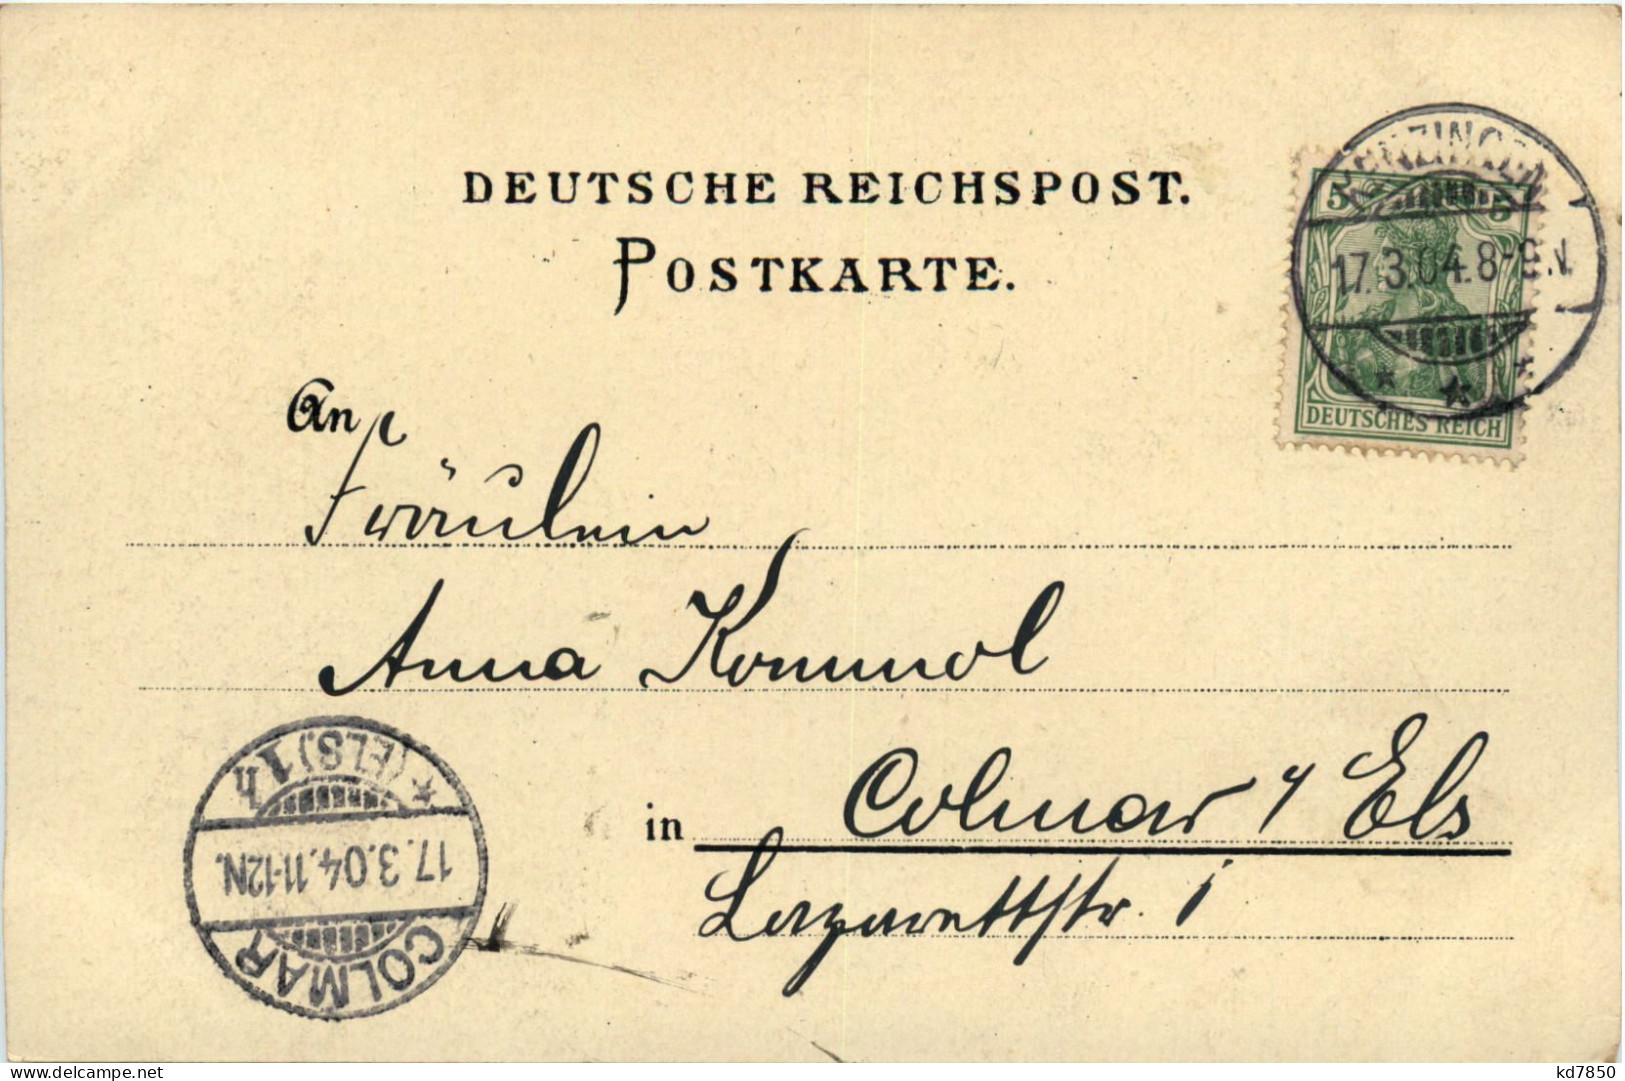 DEUTSCHE REICHSPOST.
POSTKARTE.
5 5
17.3.04.8-9.V.
DEUTSCHES REICH
An
Fräulein
Anna Kommol
in Colmar i Els
Lazarettstr. 1
* (ELS). 1h
17.3.04.11-12N.
COLMAR
kd7850